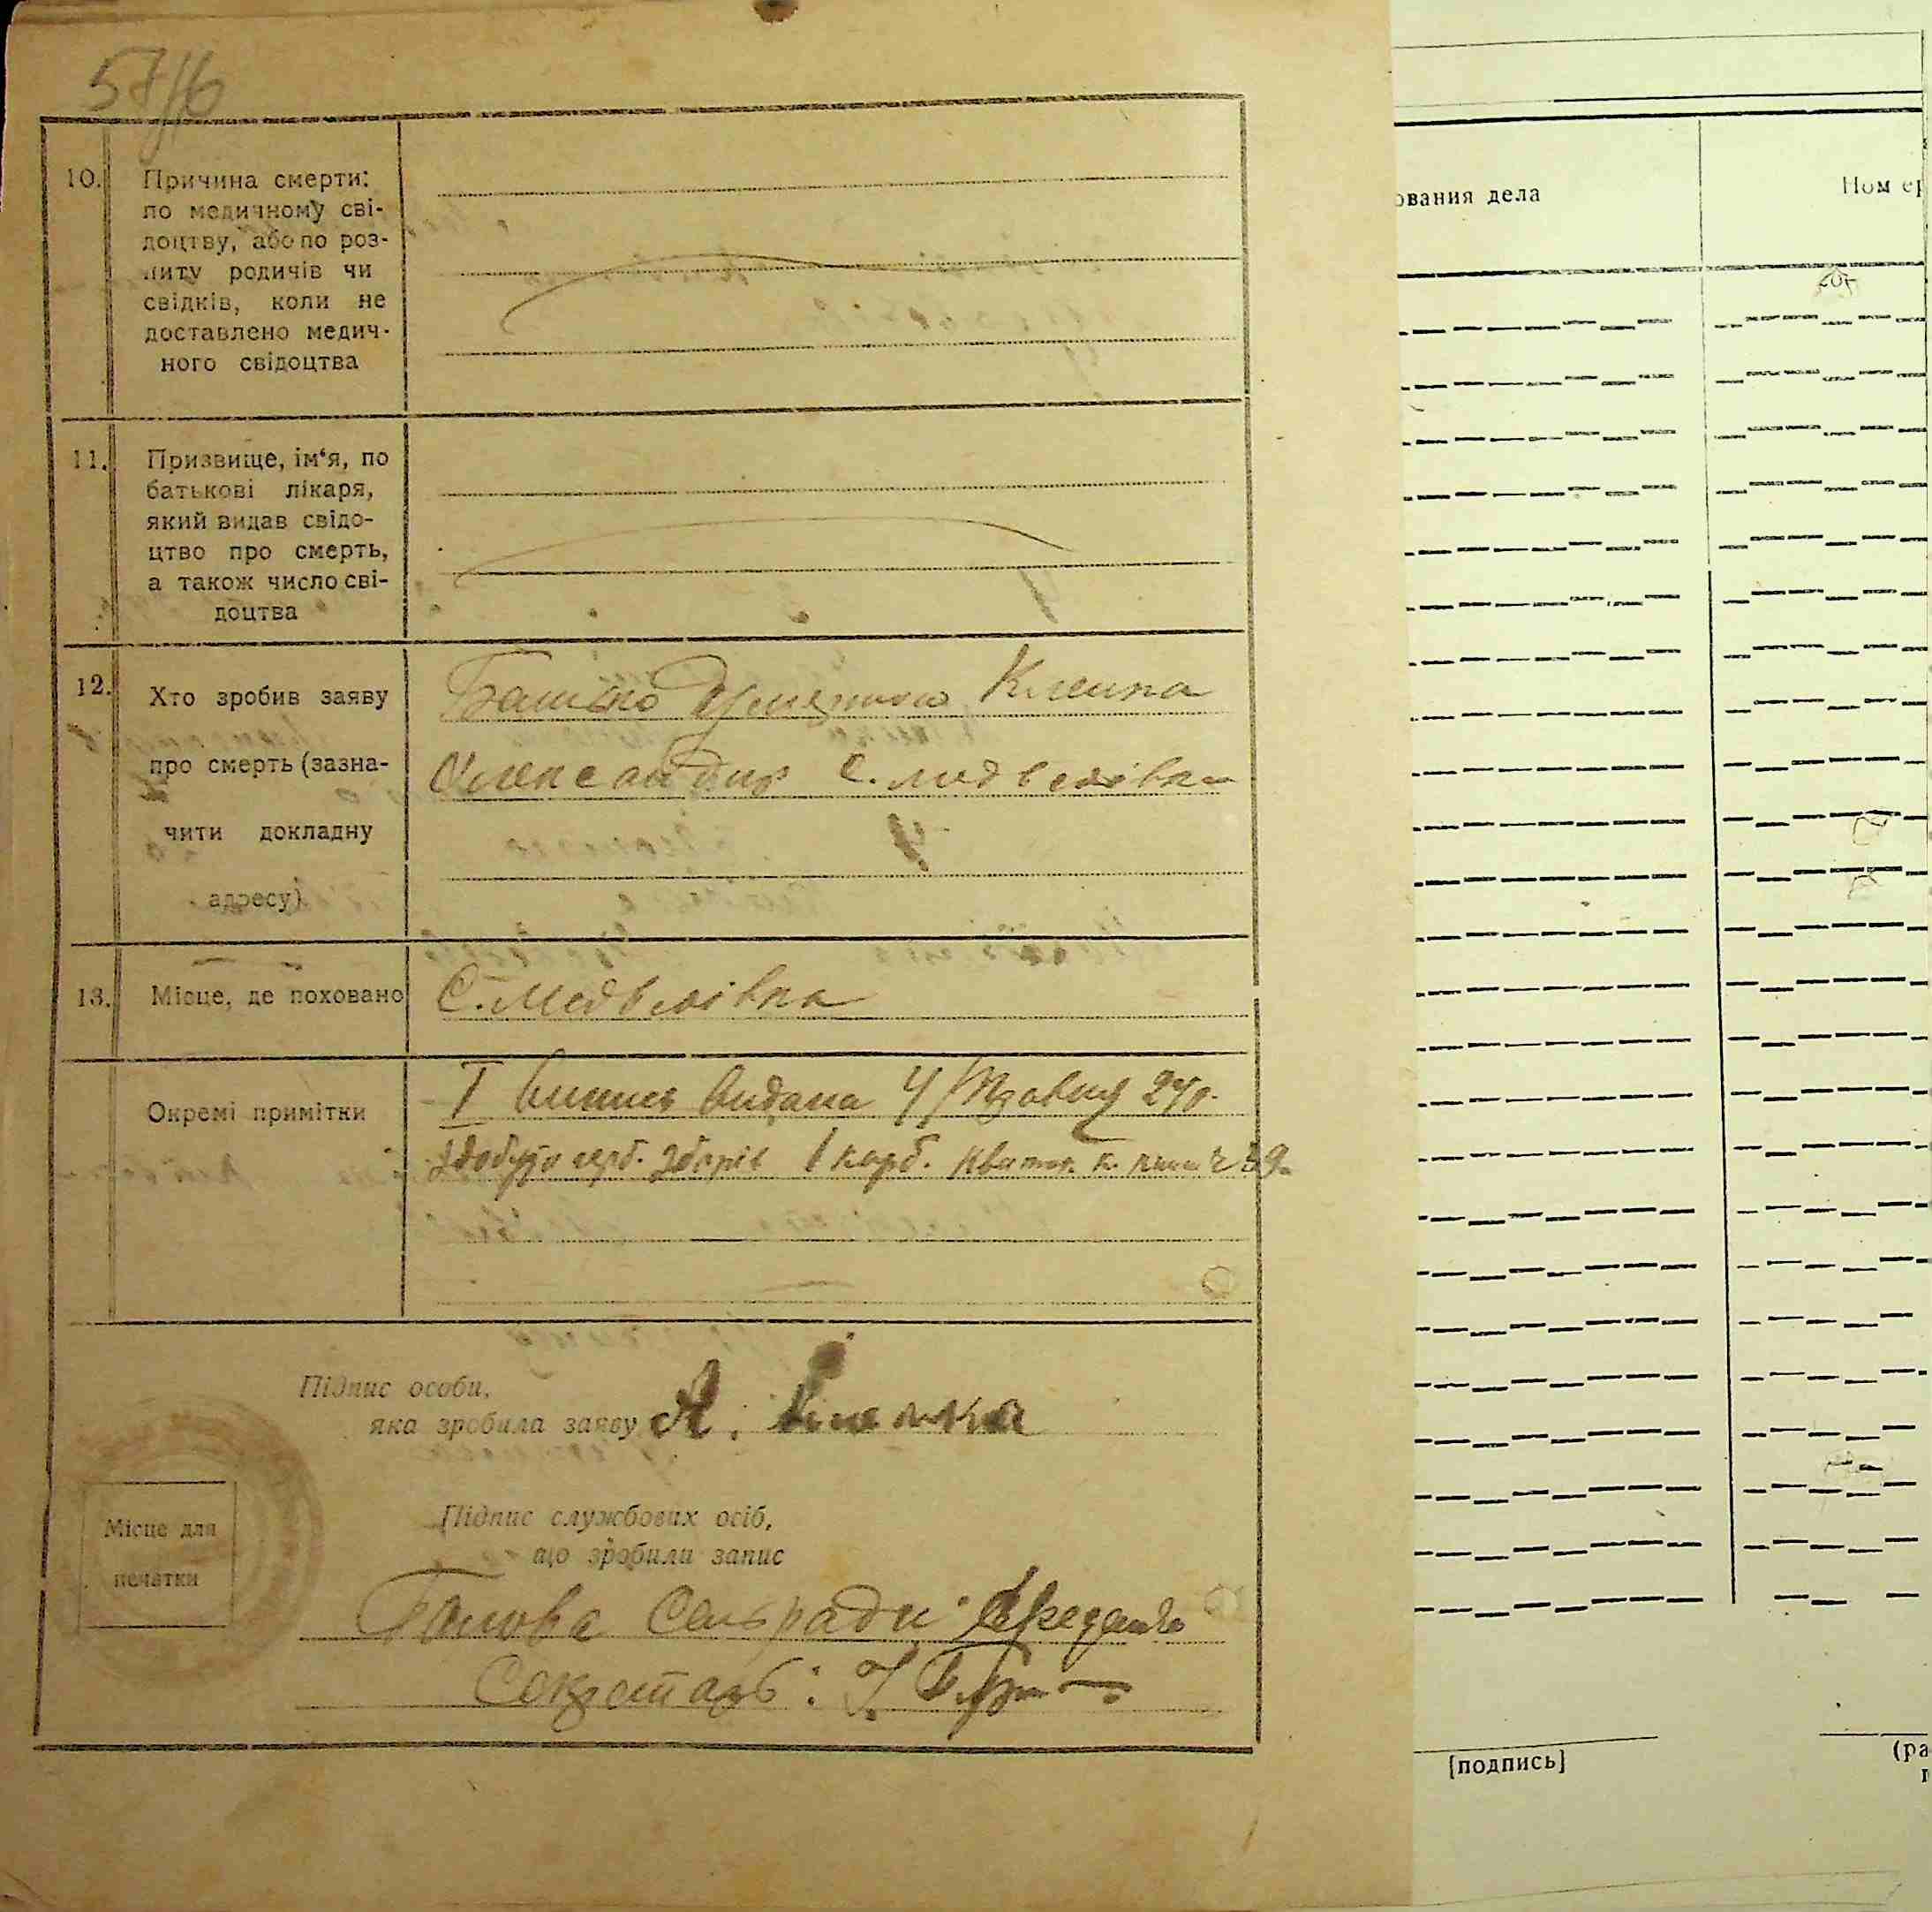 57/6
10. Причина смерти:
по медичному сві-
доцтву, або по роз-
питу родичів чи
свідків, коли не
доставлено медич-
ного свідоцтва
11. Призвище, ім‘я, по
батькові лікаря,
який видав свідо-
цтво про смерть,
а також число сві-
доцтва
12. Хто зробив заяву
про смерть (зазна-
чити докладну
адресу)
Батько
Олександр С. Медведівка
13. Місце, де поховано С. Медведівка
Окремі примітки
I випись видана 4/Травня 24р.
герб. зборіс 1 карб.
Підпис особи,
яка зробила заяву А.
Місце для
печатки
Підпис службових осіб,
що зробили запис
Голова Сельради
Секретарь:
ования дела
Ном
[подпись]
(ра